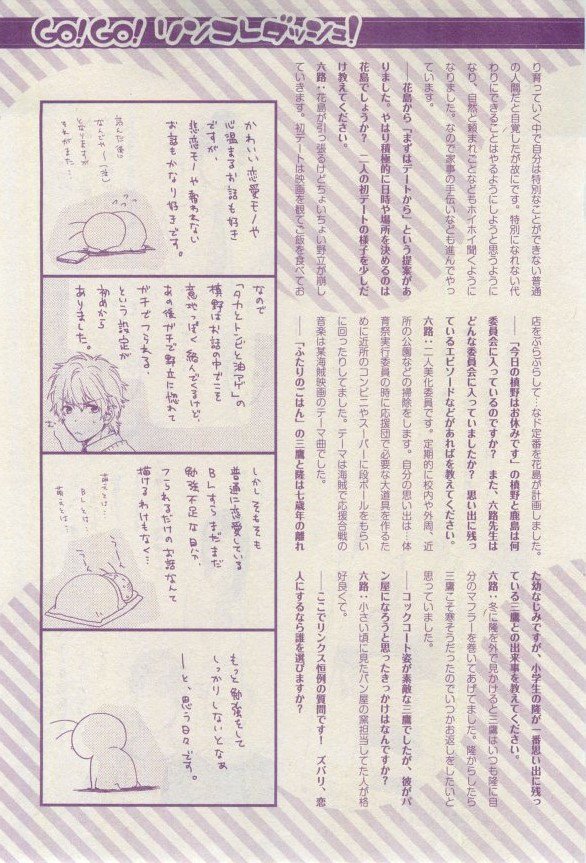 GO!GO!リンコレダッシュ!
り育っていく中で自分は特別なことができない普通
の人間だと自覚したが故にです。特別になれない代
わりにできることはやるようにしようと思うように
なり、自然と頼まれごとなどもホイホイ聞くように
なりました。なので家事の手伝いなども進んでやっ
ています。
――花島から「まずはデートから」という提案があ
りました。やはり積極的に日時や場所を決めるのは
花島でしょうか? 二人の初デートの様子を少しだ
け教えてください。
六路:花島が引っ張るけどちょいちょい野立が崩し
ていきます。初デートは映画を観てご飯を食べてお
店をぶらぶらして…など定番を花島が計画しました。
――「今日の槙野はお休みです」の槙野と鹿島は何
委員会に入っているのですか? また、六路先生は
どんな委員会に入っていましたか? 思い出に残っ
ているエピソードなどがあればを教えてください。
六路:二人美化委員です。定期的に校内や外周、近
所の公園などの掃除をします。自分の思い出は…体
育祭実行委員の時に応援団で必要な大道具を作るた
めに近所のコンビニやスーパーに段ボールをもらい
に回ったりしてました。テーマは海賊で応援合戦の
音楽は某海賊映画のテーマ曲でした。
――「ふたりのごはん」の三鷹と隆は七歳年の離れ
た幼なじみですが、小学生の隆が一番思い出に残っ
ている三鷹との出来事を教えてください。
六路:冬に隆を外で見かけると三鷹はいつも隆に自
分のマフラーを巻いてあげてました。隆からしたら
三鷹こそ寒そうだったのでいつかお返しをしたいと
思っていました。
――コックコート姿が素敵な三鷹でしたが、彼がパ
ン屋になろうと思ったきっかけはなんですか?
六路:小さい頃に見たパン屋の窯担当してた人が格
好良くて。
――ここでリンクス恒例の質問です! ズバリ、恋
人にするなら誰を選びますか?
かわいい恋愛モノや
心温まるお話も好き
ですが、
悲恋モノや報われない
お話もかなり好きです。
読んだ後は
なんでや〜(泣)
となりますが
それがまた…
なので
「タカとトンビと油アゲ」の
槙野はお話の中でこそ
意地っぽく絡んでくるけど、
あの後ガチで野立に惚れて
ガチでフラれる、
という設定が
初めから
ありました。
しかしそもそも
普通に恋愛している
BLすらまだまだ
勉強不足な自分が、
フラれるだけのお話なんて
描けるわけもなく…
BLとは…
萌えとは…
萌えとは…
もっと勉強をして
しっかりしないとなあ
ーと、思う日々です。